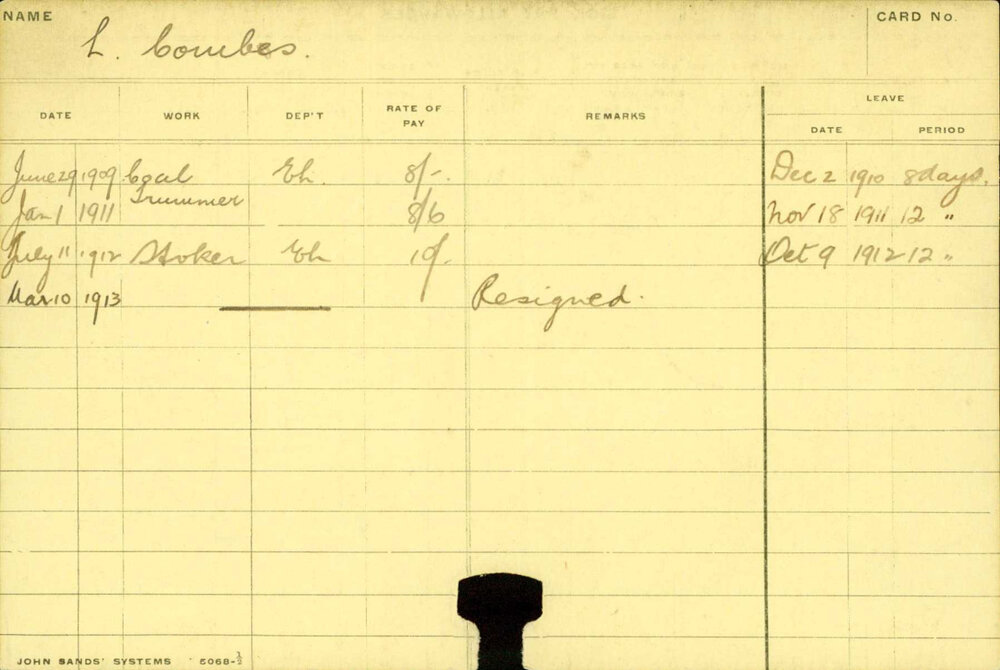 NAME L. Combes. CARD No.
LEAVE
DATE WORK DEP'T RATE OF PAY REMARKS DATE PERIOD
June 29 1909 Coal Trimmer Eh. 8/-. Dec 2 1910 8 days.
Jan 1 1911 8/6 Nov 18 1911 12 "
July 11 1912 Stoker Eh 10/- Oct 9 1912 12 "
Mar 10 1913 Resigned.
JOHN SANDS' SYSTEMS 5068-½